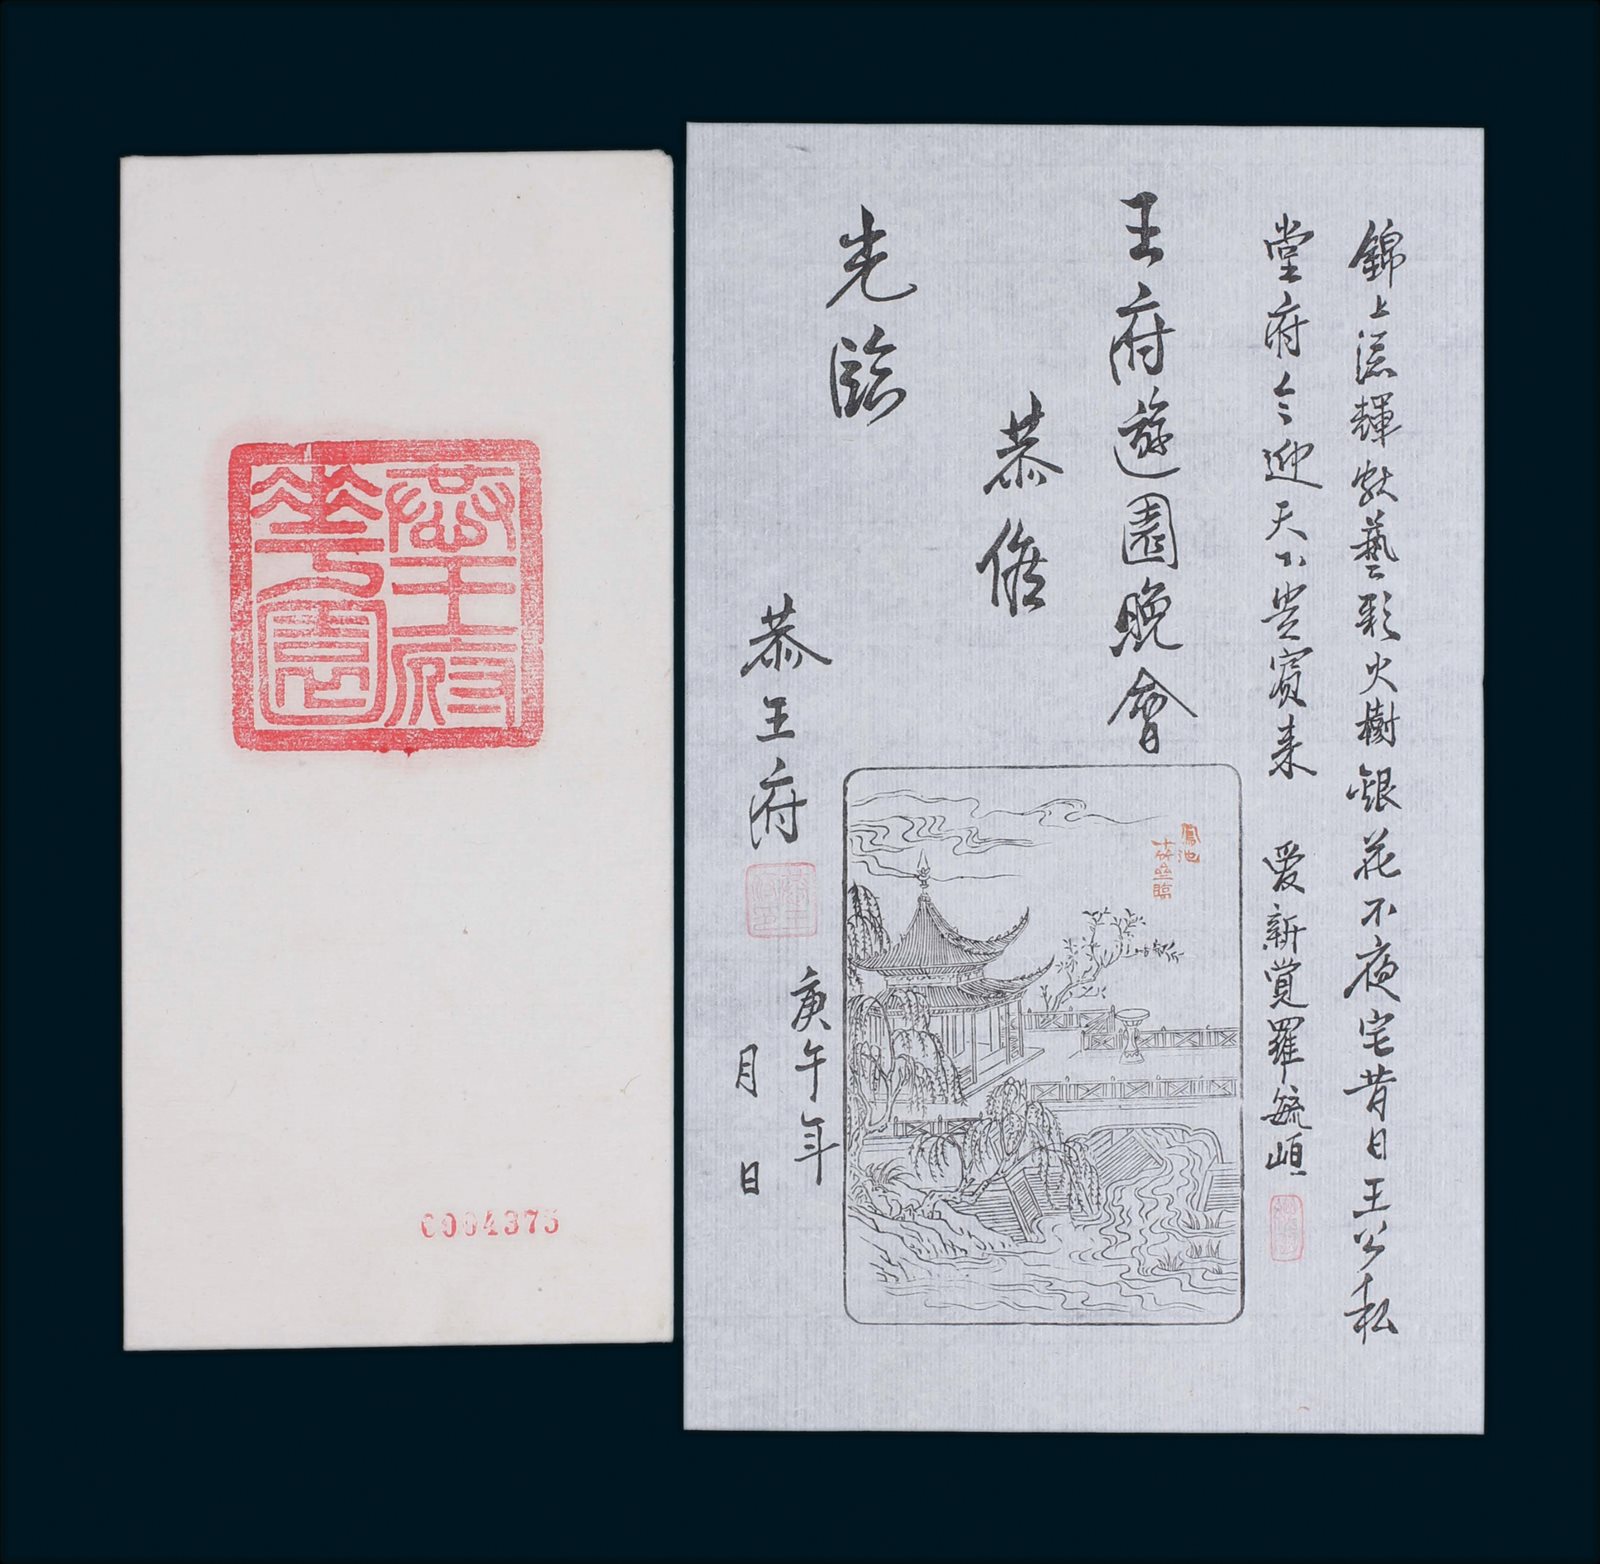 恭王府
花園
0004375
錦上流輝獻藝彩火樹銀花不夜宅昔日王公私
堂府今迎天下貴賓來 愛新覺羅毓峘
王府遊園晚會
恭候
光臨
恭王府
庚午年
月 日
鳳池